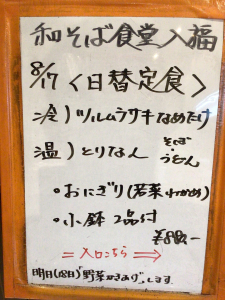 和そば食堂入福
8/17 〈日替定食〉
冷)ツルムラサキなめたけ
温)とりなん
そば
・
うどん
・おにぎり(若菜わかめ)
・小鉢 2品付
¥880-
＝入口こちら⇒
明日(18日)「野菜かきあげ」します